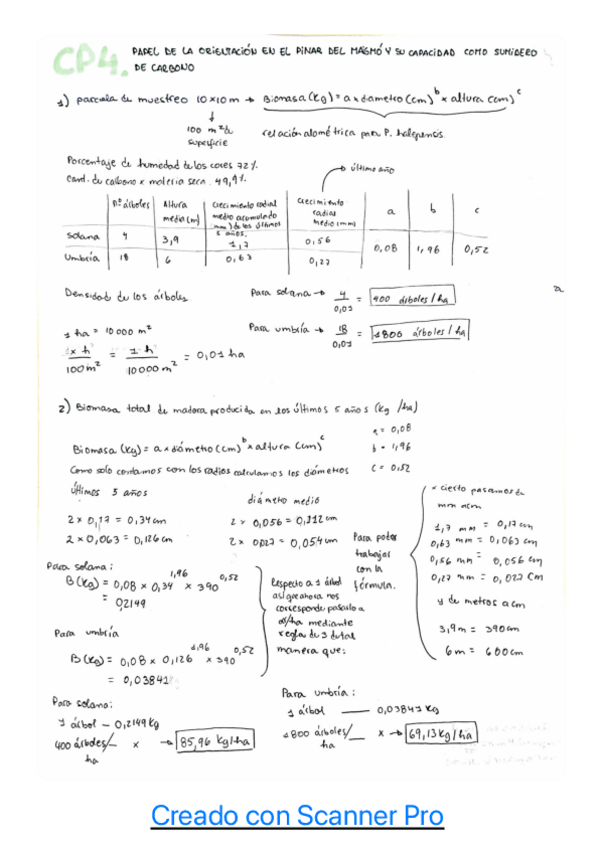 CP4. PAPEL DE LA ORIENTACIÓN EN EL PINAR DEL MAGMÓ Y SU CAPACIDAD COMO SUMIDERO
DE CARBONO
1) parcela de muestreo 10x10m → Biomasa (Kg) = a x diametro (cm)^b x altura (cm)^c
100 m² de
superficie
relación alométrica para P. halepensis.
Porcentaje de humedad de los cores 72%.
Cant. de carbono x materia seca. 49,9%
último año
Nº árboles | Altura media (m) | Crecimiento radial medio acumulado mm) de los últimos 5 años. | Crecimiento radial medio (mm) | a | b | c
Solana | 4 | 3,9 | 1,7 | 0,56 | 0,08 | 1,96 | 0,52
Umbría | 18 | 6 | 0,63 | 0,27
Densidad de los árboles
Para solana → 4/0,01 = 400 árboles/ha
a
1 ha = 10000 m²
Para umbría → 18/0,01 = 1800 árboles/ha
x h/100m² = 1 h/10000m² = 0,01 ha
2) Biomasa total de madera producida en los últimos 5 años (Kg /ha)
a = 0,08
Biomasa (Kg) = a x diámetro (cm)^b x altura (cm)^c
b = 1,96
Como solo contamos con los radios calculamos los diámetros
c = 0,52
últimos 5 años
diámetro medio
2 x 0,17 = 0,34 cm
2 x 0,056 = 0,112 cm
2 x 0,063 = 0,126 cm
2 x 0,027 = 0,054 cm
Para poder
trabajar
con la
fórmula.
x cierto pasamos de
mm a cm
1,7 mm = 0,17 cm
0,63 mm = 0,063 cm
0,56 mm = 0,056 cm
0,27 mm = 0,027 cm
y de metros a cm
3,9 m = 390 cm
6 m = 600 cm
Para solana:
B (Kg) = 0,08 x 0,34^1,96 x 390^0,52
= 0,2149
Para umbría
B (Kg) = 0,08 x 0,126^1,96 x 390^0,52
= 0,03841
Respecto a 1 árbol
así que ahora nos
corresponde pasarlo a
ar/ha mediante
regla de 3 de tal
manera que:
Para solana:
1 árbol – 0,2149 Kg
400 árboles/ha — x → 85,96 Kg/ha
Para umbría:
1 árbol — 0,03841 Kg
1800 árboles/ha — x → 69,13 Kg/ha
Creado con Scanner Pro